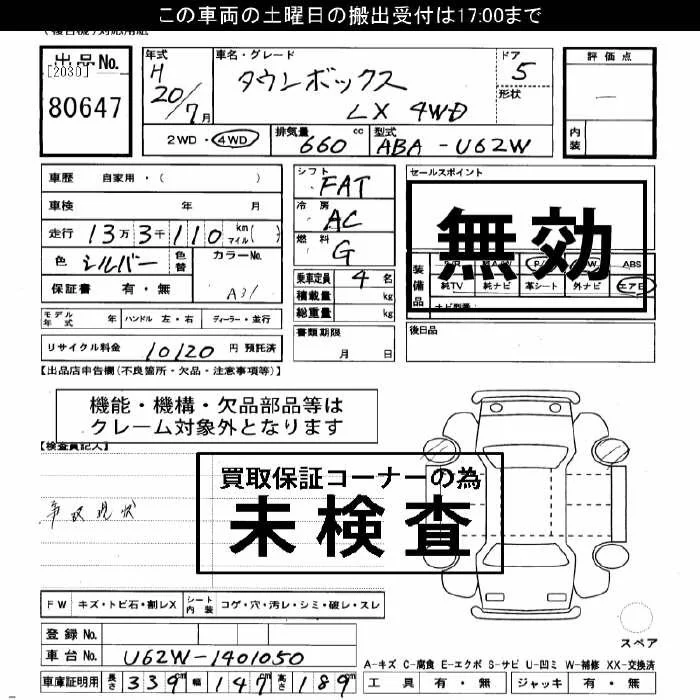 この車両の土曜日の搬出受付は17:00まで
出品No.
[2030]
80647
年式
H
20/7月
車名・グレード
タウンボックス
LX 4WD
ドア
5
形状
評価点
内装
2WD・4WD
排気量
660 cc
型式
ABA-U62W
車歴 自家用・( )
車検 年 月
走行 13万3千110 km マイル( )
色 シルバー 色替
カラーNo.
A31
保証書 有・無
シフト
FAT
冷房
AC
燃料
G
乗車定員 4名
積載量 kg
総重量 kg
書類期限
月 日
セールスポイント
無効
装備品
ABS
純TV 純ナビ 革シート 外ナビ エアB
後日品
モデル年式 年 ハンドル 左・右 ディーラー・並行
リサイクル料金 10120 円 預託済
【出品店申告欄(不良箇所・欠品・注意事項等)】
機能・機構・欠品部品等は
クレーム対象外となります
【検査員記入】
買取保証コーナーの為
未検査
事故現状
FW キズ・トビ石・割レX シート内装 コゲ・穴・汚レ・シミ・破レ・スレ
登録No.
車台No. U62W-1401050
車庫証明用 長さ 339cm 幅 147cm 高さ 189cm
スペア
A-キズ C-腐食 E-エクボ S-サビ U-凹ミ W-補修 XX-交換済
工具 有・無 ジャッキ 有・無